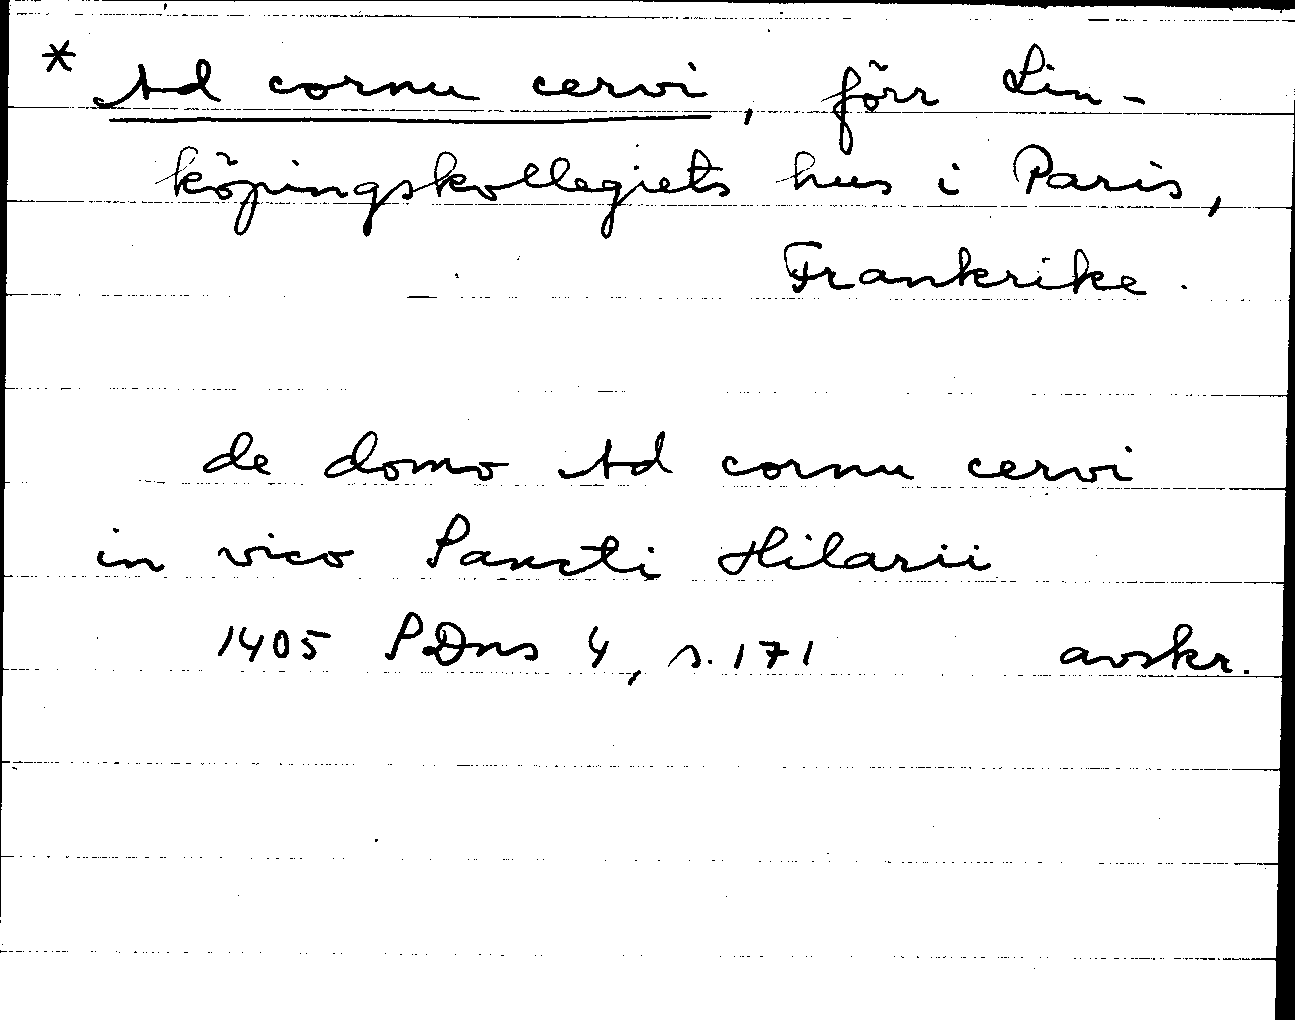 * Ad cornu cervi, förr Lin-
köpingskollegiets hus i Paris,
Frankrike.
de domo Ad cornu cervi
in vico Sancti Hilarii
1405 SDns 4, s. 171 avskr.